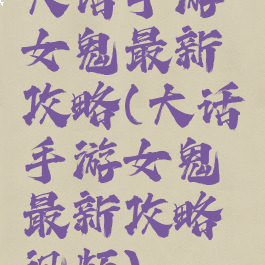 大话手游
女鬼最新
攻略(大话
手游女鬼
最新攻略
视频)